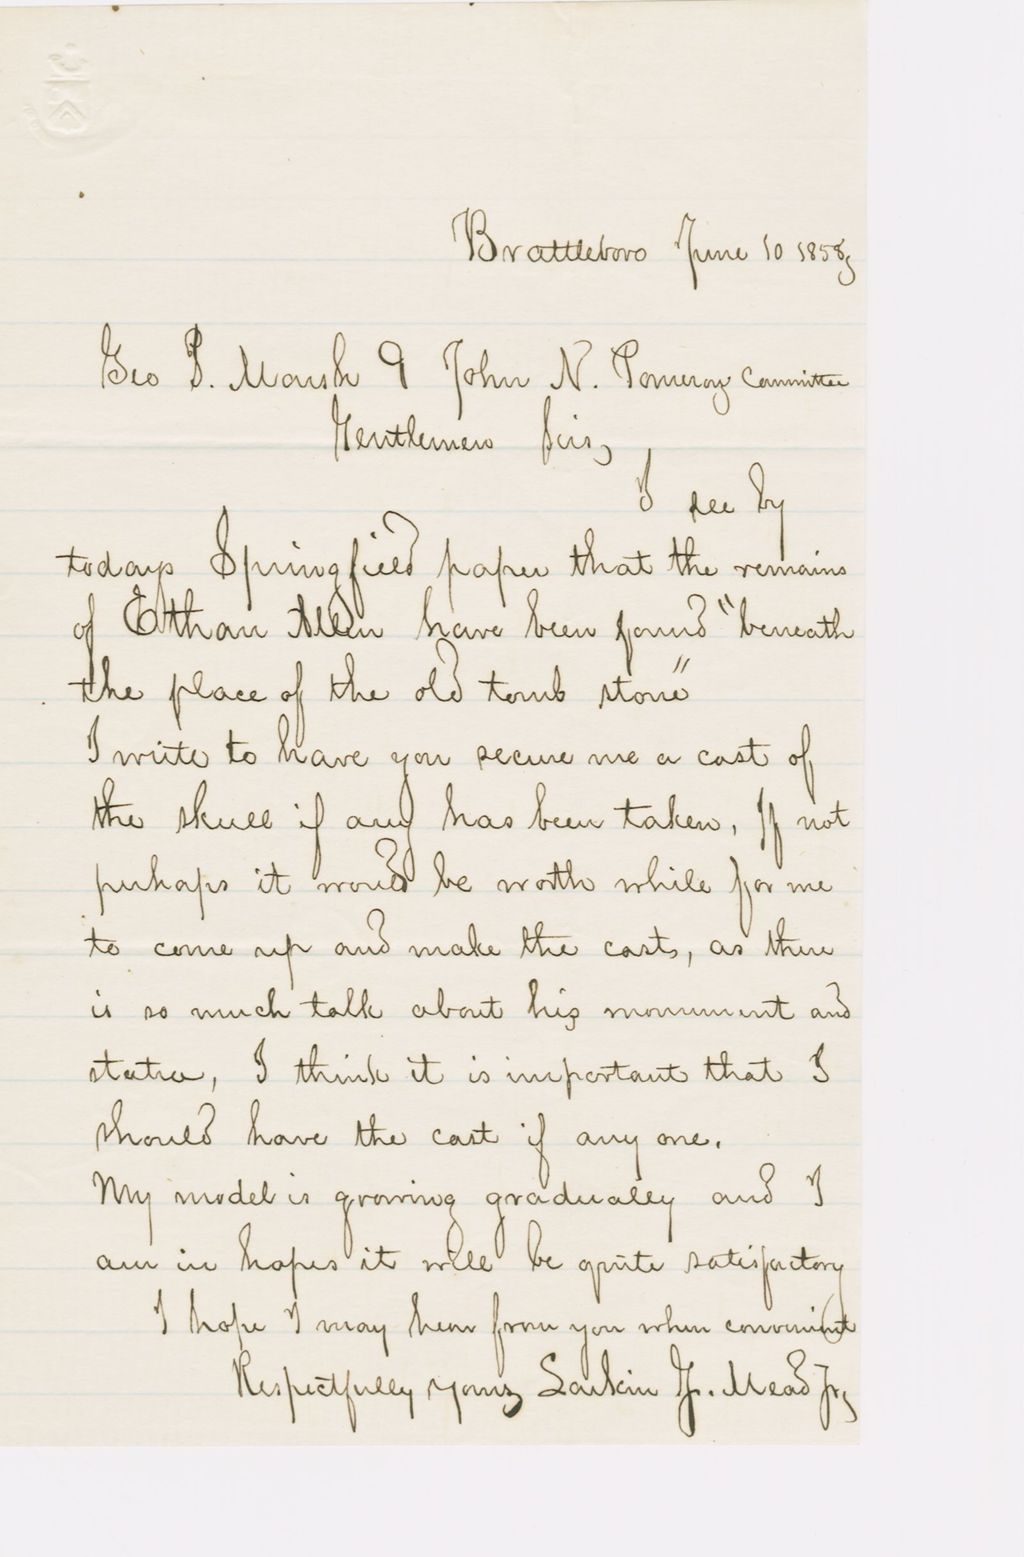 Brattleboro June 10 1858,
Geo P. Marsh & John N. Pomeroy Committee
Gentlemen Sirs,
I see by
todays Springfield paper that the remains
of Ethan Allen have been found "beneath
the place of the old tomb stone"
I write to have you secure me a cast of
the skull if any has been taken, If not
perhaps it would be worth while for me
to come up and make the casts, as there
is so much talk about his monument and
statue, I think it is important that I
should have the cast if any one.
My model is growing gradually and I
am in hopes it will be quite satisfactory
I hope I may hear from you when convenient
Respectfully yours, Larkin G. Mead Jr,